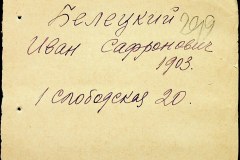 Белецкий 2019
Иван Сафронович
1903.
1 слободская 20.